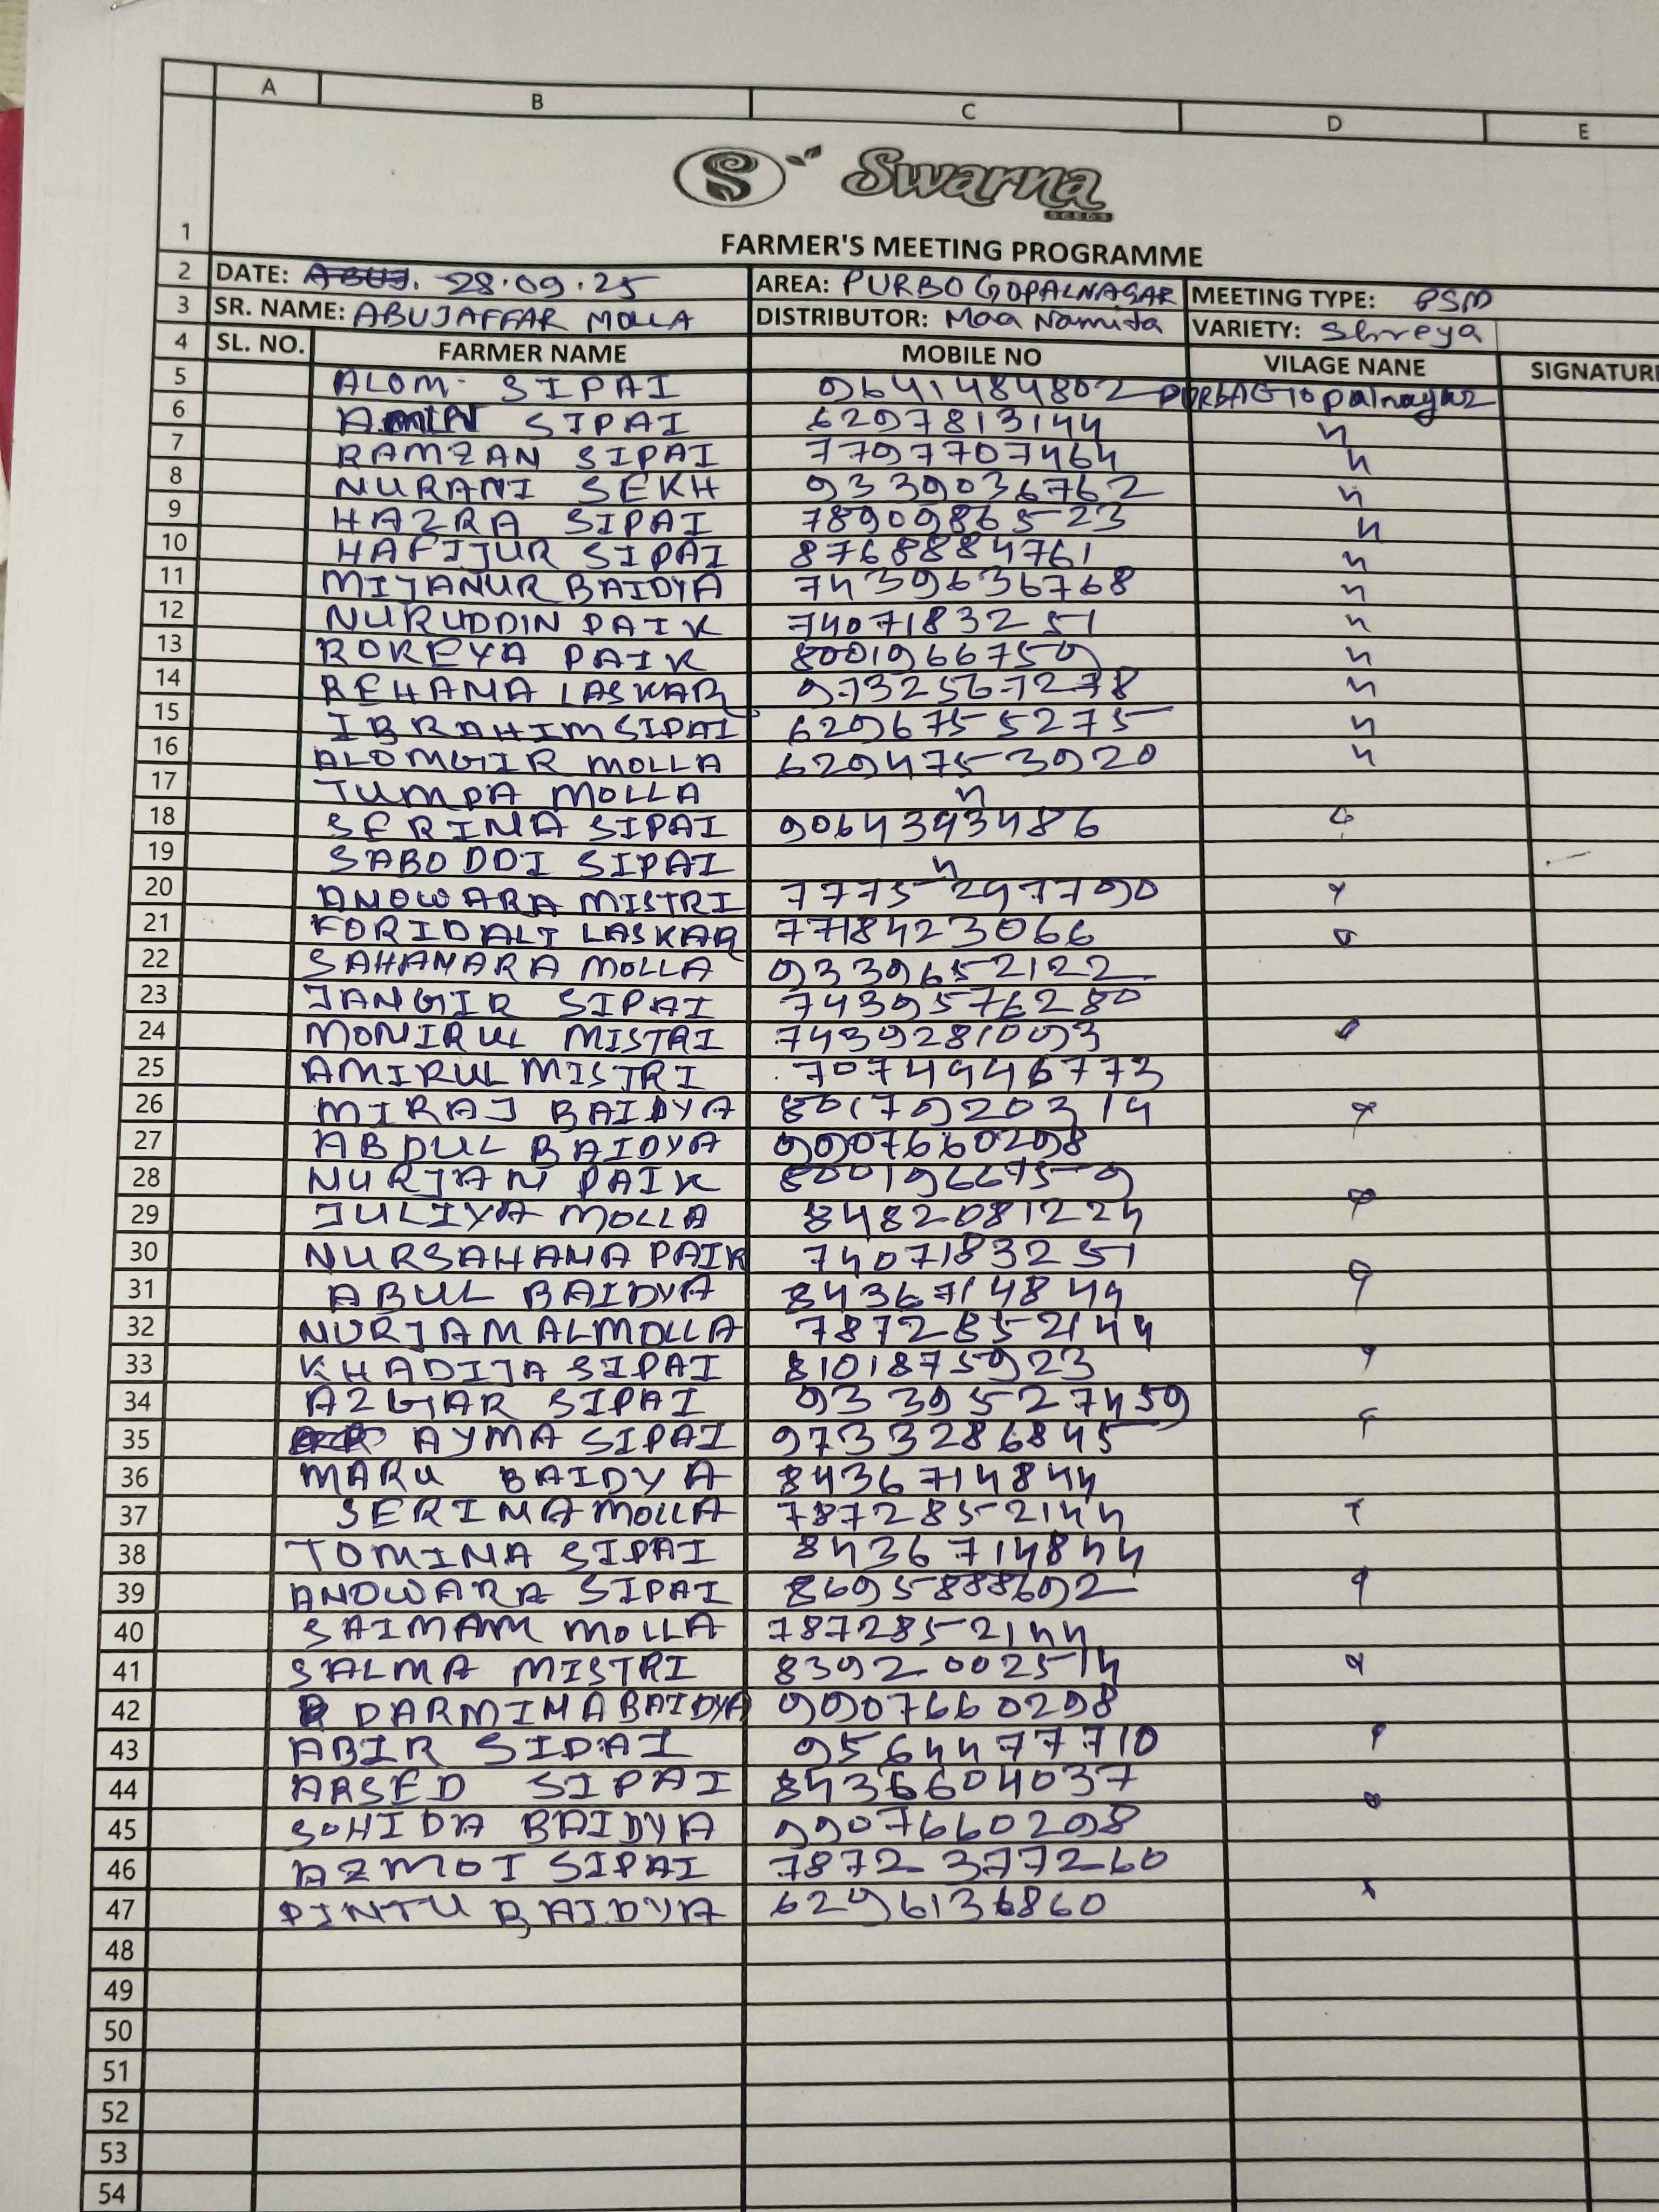 A B C D E
S Swarna
SEEDS
1
FARMER'S MEETING PROGRAMME
2 DATE: 28.09.25 AREA: PURBO GOPALNAGAR MEETING TYPE: PSM
3 SR. NAME: ABUJAFFAR MOLLA DISTRIBUTOR: Maa Namita VARIETY: Shreya
4 SL. NO. FARMER NAME MOBILE NO VILAGE NANE SIGNATURE
5 ALOM SIPAI 9641484802 PURBAGopalnagar
6 AMIN SIPAI 6297813144 "
7 RAMZAN SIPAI 7797707464 "
8 NURANI SEKH 9339036762 "
9 HAZRA SIPAI 7890986523 "
10 HAFIJUR SIPAI 8768884761 "
11 MIJANUR BAIDYA 7439636768 "
12 NURUDDIN PAIK 7407183251 "
13 ROKEYA PAIK 8001966759 "
14 REHANA LASKAR 9732567278 "
15 IBRAHIM SIPAI 6296755275 "
16 ALOMGIR MOLLA 6294753920 "
17 TUMPA MOLLA "
18 SERINA SIPAI 9064343486
19 SABODDI SIPAI "
20 ANOWARA MISTRI 7775297790
21 FORIDALI LASKAR 7718423066
22 SAHANARA MOLLA 9339652122
23 JANGIR SIPAI 7439576280
24 MONIRUL MISTRI 7439281093
25 AMIRUL MISTRI 7074946773
26 MIRAJ BAIDYA 8017920314
27 ABDUL BAIDYA 9907660298
28 NURJAN PAIK 8001966759
29 JULIYA MOLLA 8482081224
30 NURSAHANA PAIK 7407183251
31 ABUL BAIDYA 8436714844
32 NURJAMAL MOLLA 7872852144
33 KHADIJA SIPAI 8101875923
34 AZGAR SIPAI 9339527459
35 AYMA SIPAI 9733286845
36 MARU BAIDYA 8436714844
37 SERINA MOLLA 7872852144
38 TOMINA SIPAI 8436714844
39 ANOWARA SIPAI 8695888692
40 SAIMAM MOLLA 7872852144
41 SALMA MISTRI 8392002514
42 PARMINA BAIDYA 9907660298
43 ABIR SIPAI 9564477710
44 ARSED SIPAI 8436604037
45 SOHIDA BAIDYA 9907660298
46 AZMOI SIPAI 7872377260
47 PINTU BAIDYA 6296136860
48
49
50
51
52
53
54